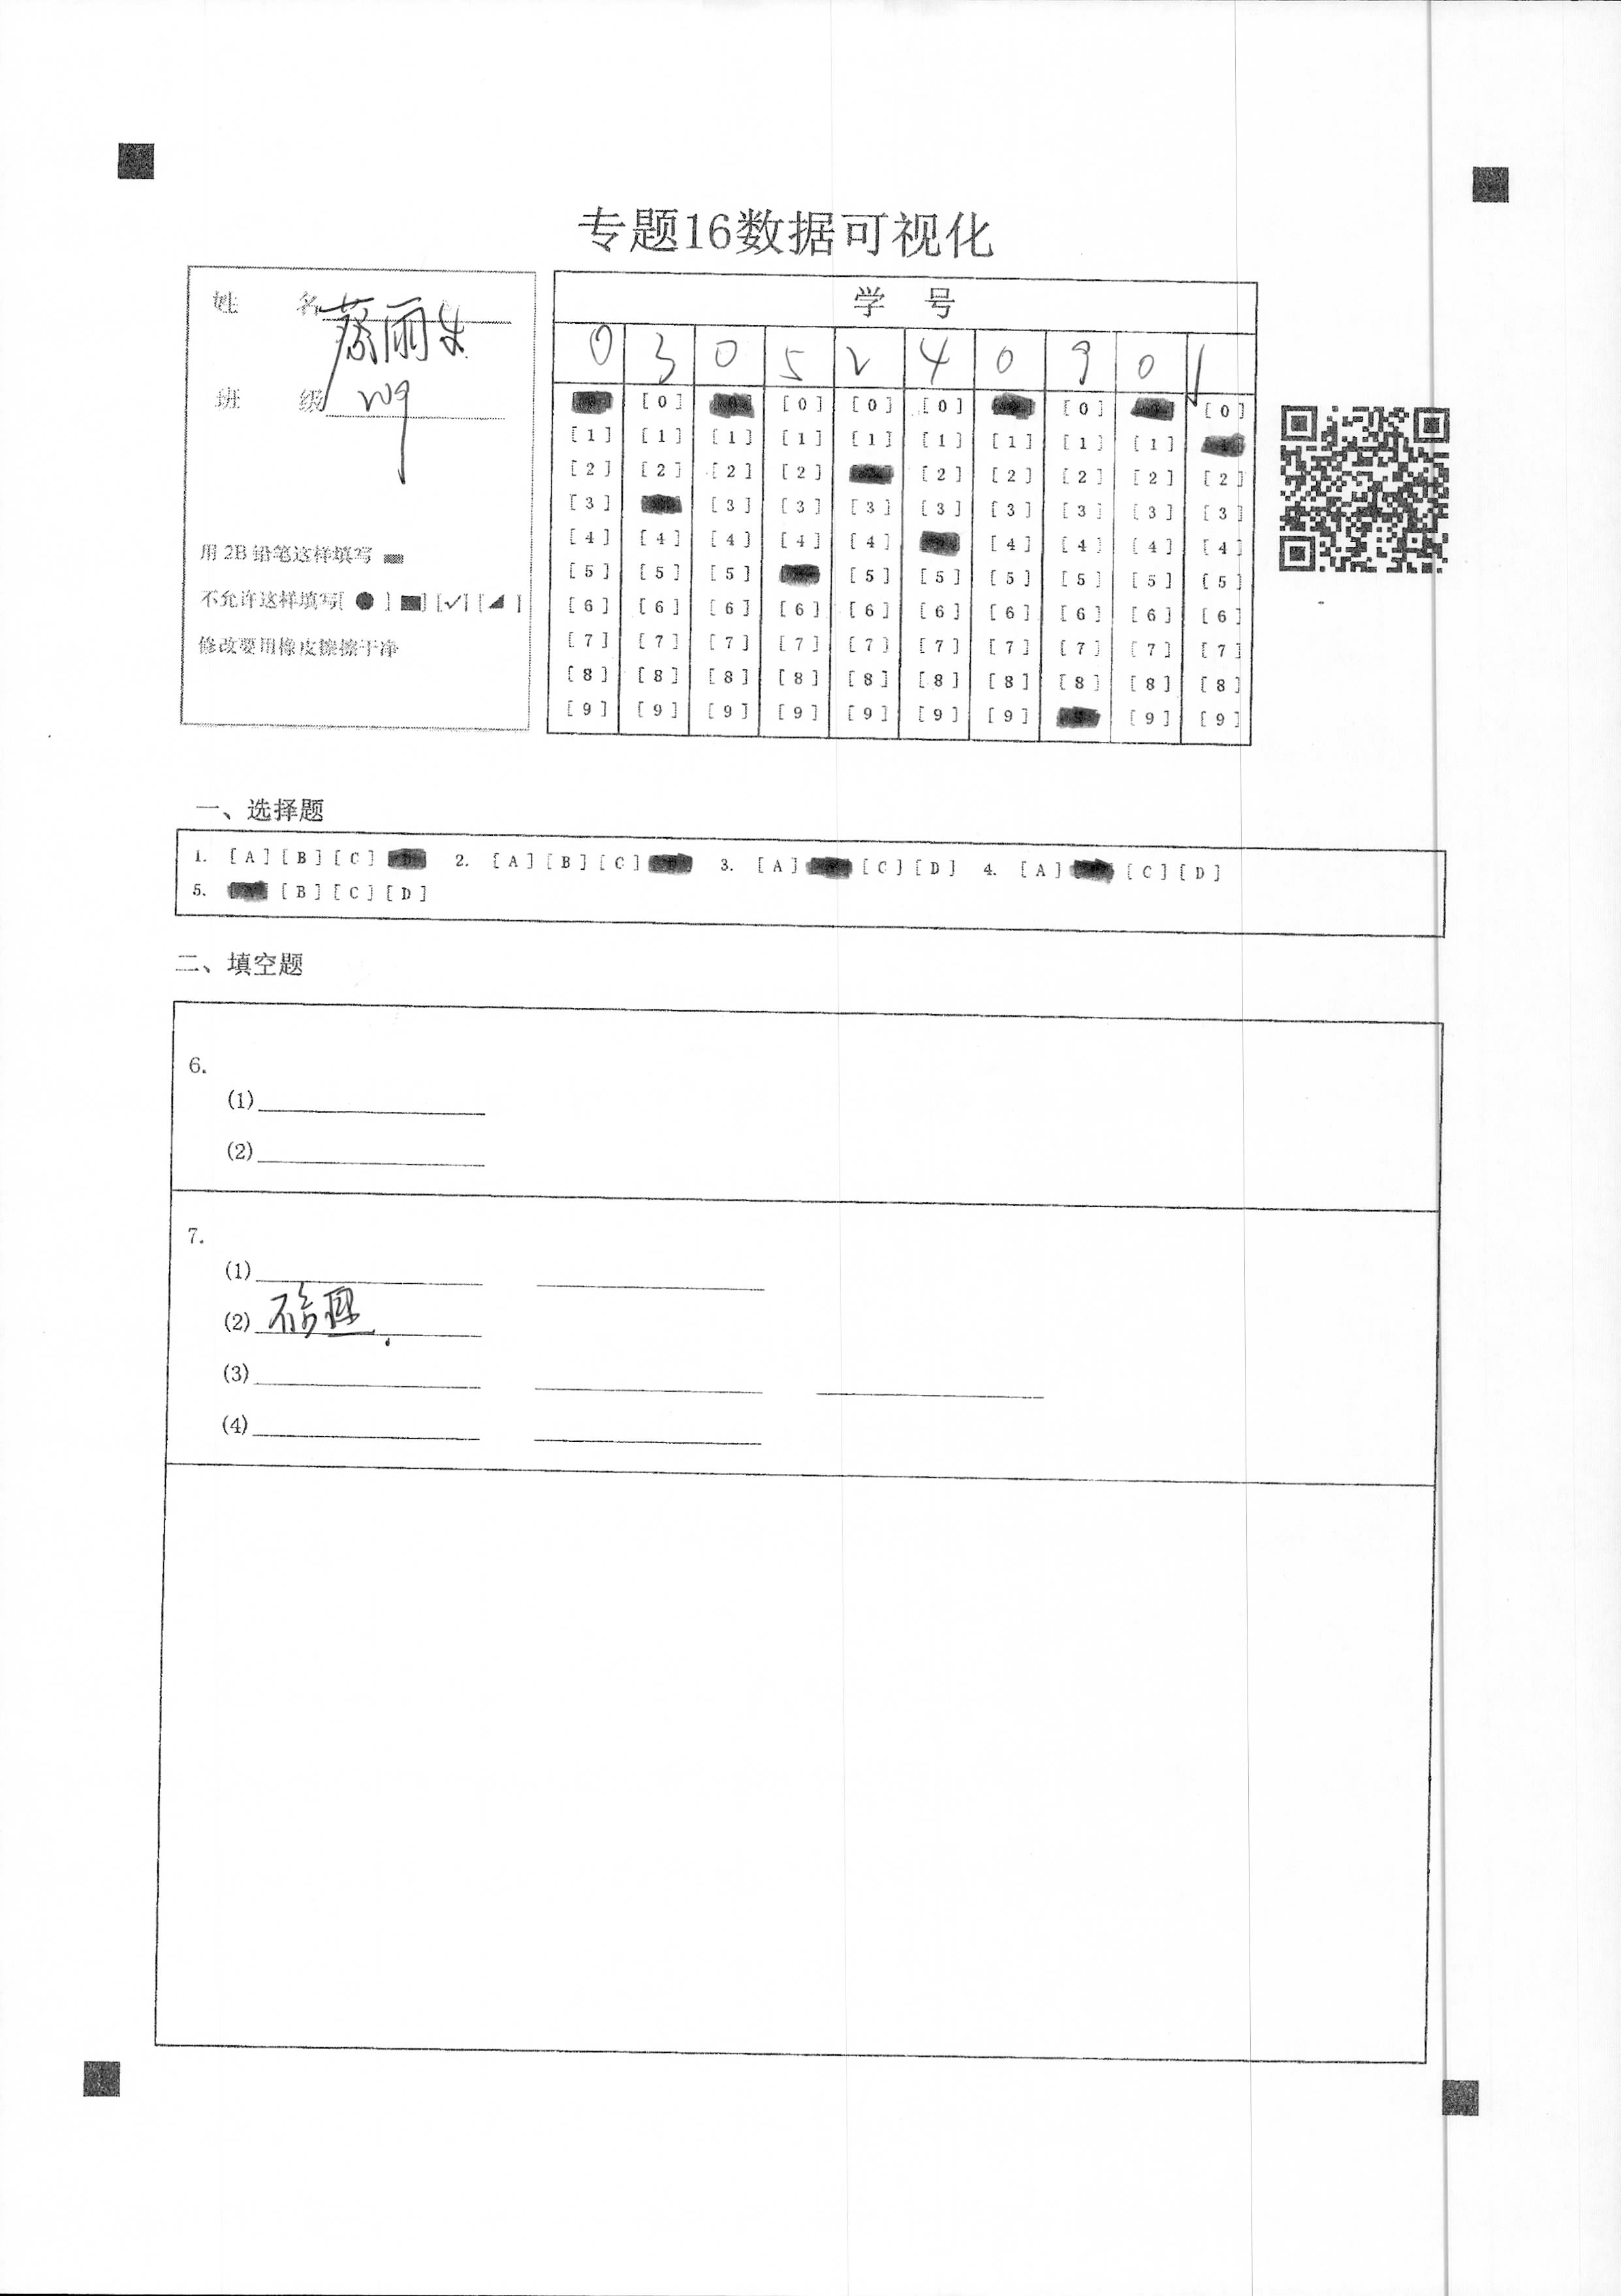 专题16数据可视化
姓 名 蔡丽朱
班 级 209
用 2B 铅笔这样填写
不允许这样填写[ ● ] [■] [✓] [◢ ]
修改要用橡皮擦擦干净
学 号
0 3 0 5 2 4 0 9 0 1
[0] [0] [0] [0] [0] [0]
[1] [1] [1] [1] [1] [1] [1] [1] [1]
[2] [2] [2] [2] [2] [2] [2] [2] [2]
[3] [3] [3] [3] [3] [3] [3] [3] [3]
[4] [4] [4] [4] [4] [4] [4] [4] [4]
[5] [5] [5] [5] [5] [5] [5] [5] [5]
[6] [6] [6] [6] [6] [6] [6] [6] [6] [6]
[7] [7] [7] [7] [7] [7] [7] [7] [7] [7]
[8] [8] [8] [8] [8] [8] [8] [8] [8] [8]
[9] [9] [9] [9] [9] [9] [9] [9] [9]
一、选择题
1. [A] [B] [C] 2. [A] [B] [C] 3. [A] [C] [D] 4. [A] [C] [D]
5. [B] [C] [D]
二、填空题
6.
(1)
(2)
7.
(1)
(2) 不合理
(3)
(4)